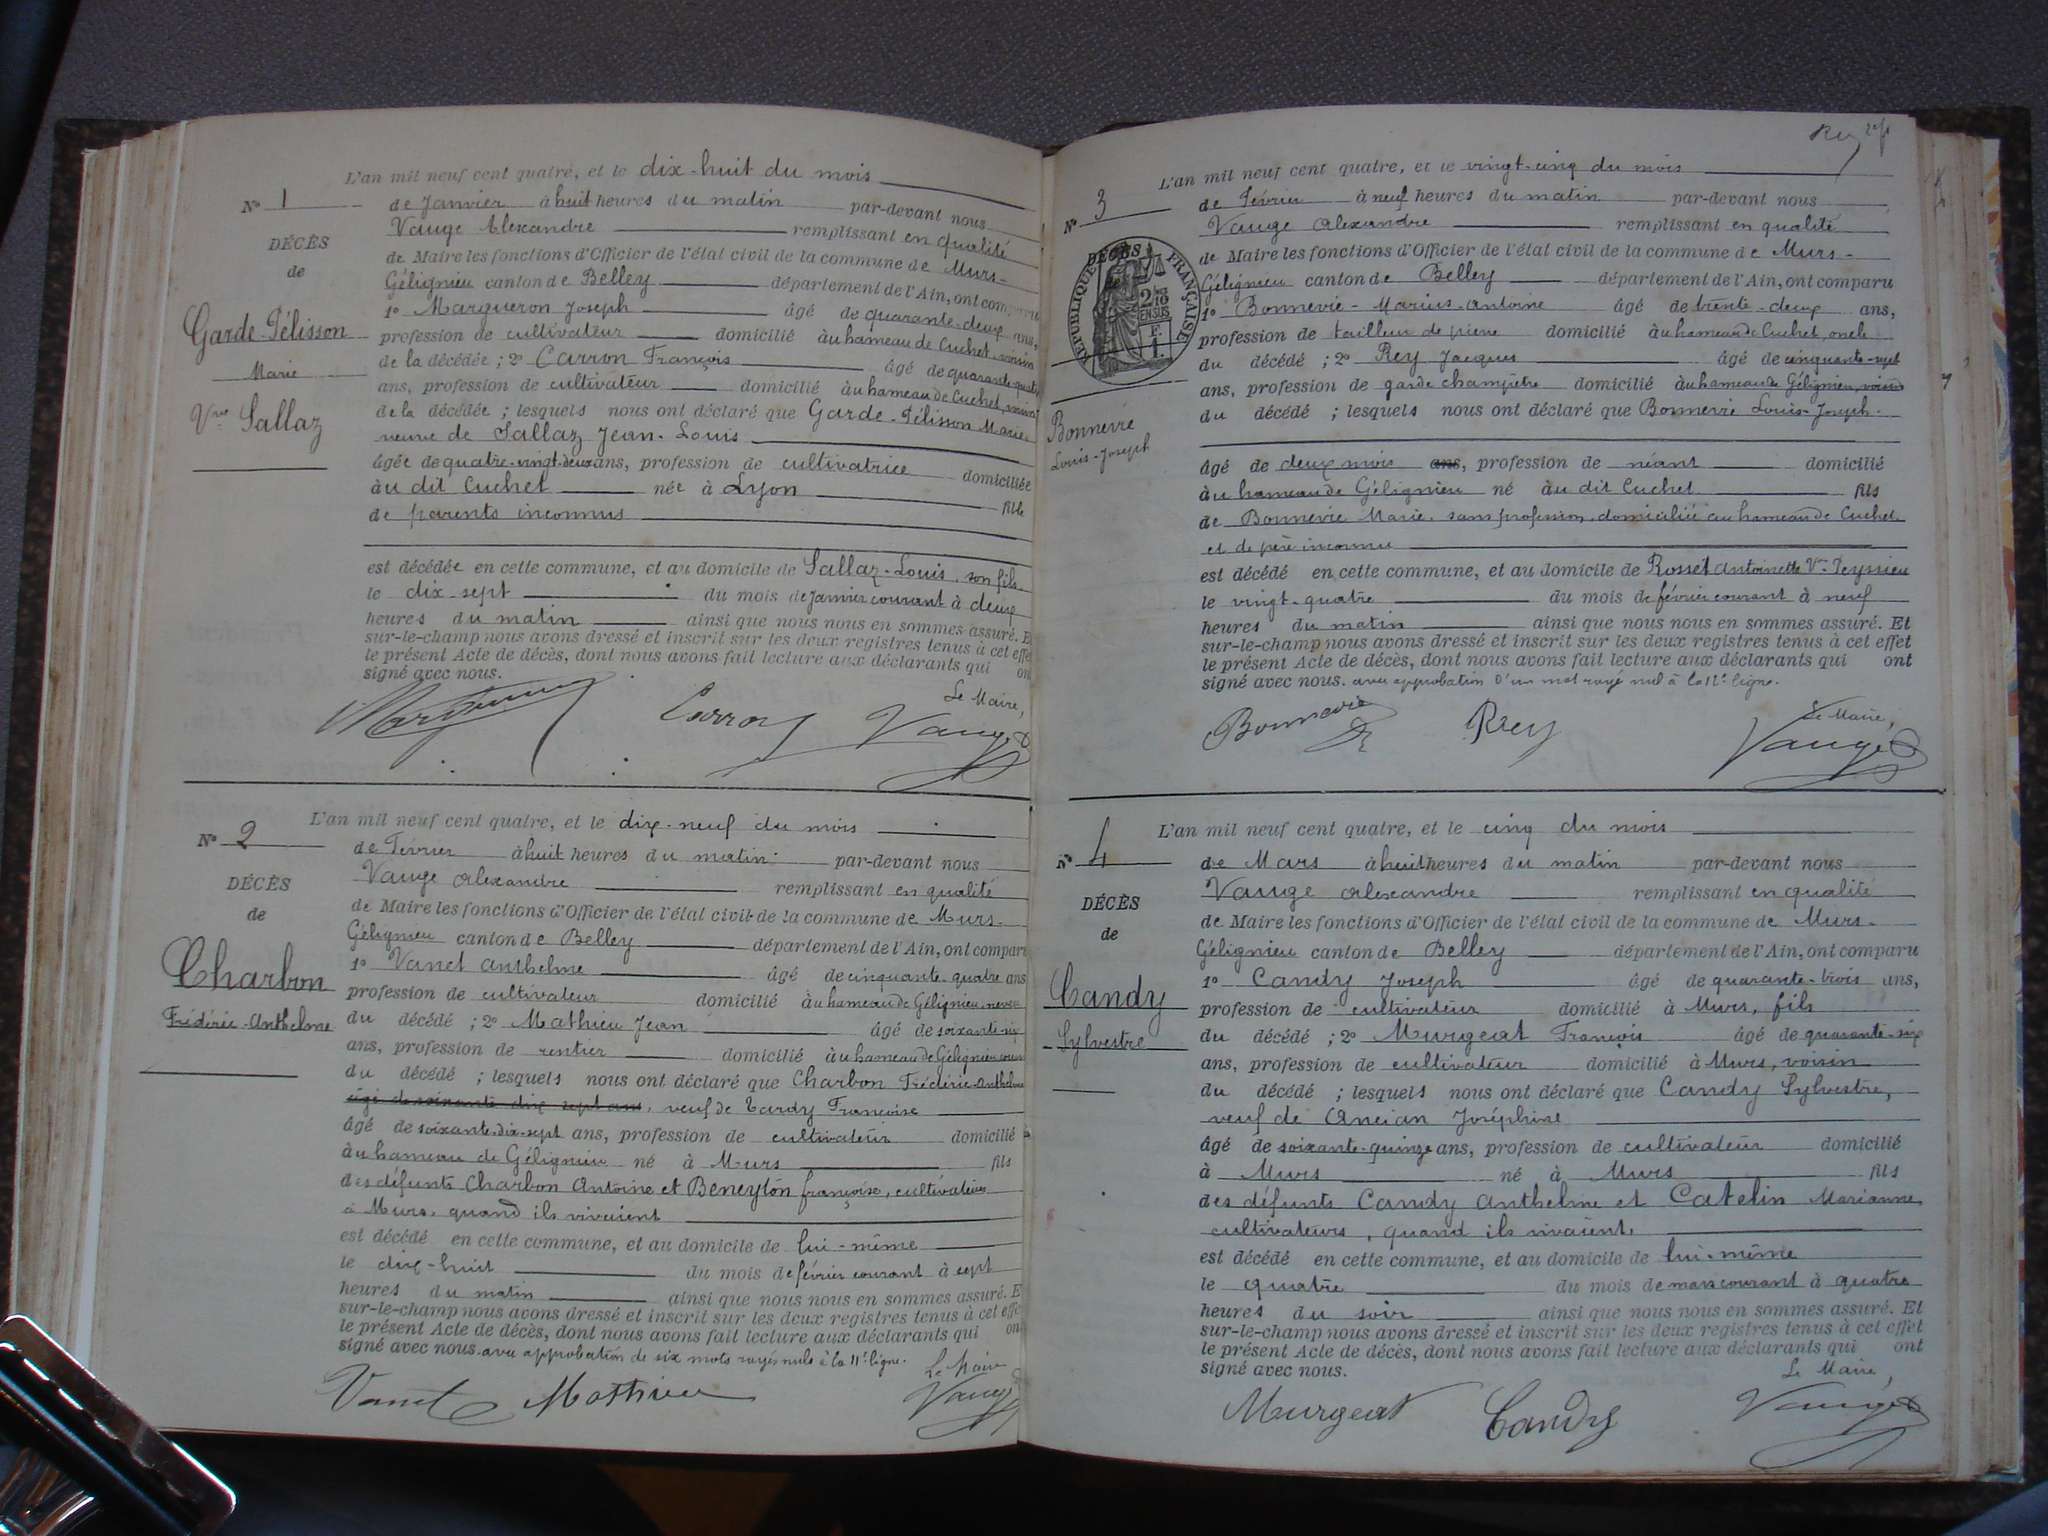 L'an mil neuf cent quatre, et le dix-huit du mois
N° 1
de Janvier à huit heures du matin par-devant nous
Vauge Alexandre remplissant en qualité
DÉCÈS
de Maire les fonctions d'Officier de l'état civil de la commune de Murs-
de
Gélignieu canton de Belley département de l'Ain, ont comparu
1° Margueron Joseph âgé de quarante-deux ans,
Garde-Pélisson
profession de cultivateur domicilié au hameau de Cuchet, voisin
de la décédée ; 2° Carron François âgé de quarante-quatre
Marie
ans, profession de cultivateur domicilié au hameau de Cuchet, voisin
Vve Sallaz
de la décédée ; lesquels nous ont déclaré que Garde-Pélisson Marie
veuve de Sallaz Jean-Louis
âgée de quatre-vingt-deux ans, profession de cultivatrice domiciliée
au dit Cuchet née à Lyon fille
de parents inconnus
est décédée en cette commune, et au domicile de Sallaz-Louis, son fils
le dix-sept du mois de janvier courant à deux
heures du matin ainsi que nous nous en sommes assuré. E
sur-le-champ nous avons dressé et inscrit sur les deux registres tenus à cet effet
le présent Acte de décès, dont nous avons fait lecture aux déclarants qui on
signé avec nous.
Le Maire,
Margueron Carron Vauge
L'an mil neuf cent quatre, et le dix-neuf du mois
N° 2
de Février à huit heures du matin par-devant nous
Vauge Alexandre remplissant en qualité
DÉCÈS
de Maire les fonctions d'Officier de l'état civil de la commune de Murs-
de
Gélignieu canton de Belley département de l'Ain, ont comparu
1° Vanet Anthelme âgé de cinquante-quatre ans
Charbon
profession de cultivateur domicilié au hameau de Gélignieu, neveu
Frédéric-Anthelme
du décédé ; 2° Mathieu Jean âgé de soixante-six
ans, profession de rentier domicilié au hameau de Gélignieu
du décédé ; lesquels nous ont déclaré que Charbon Frédéric-Anthelme
âgé de soixante dix sept ans, veuf de Tardy Françoise
âgé de soixante-dix-sept ans, profession de cultivateur domicilié
au hameau de Gélignieu né à Murs fils
des défunts Charbon Antoine et Beneyton françoise, cultivateurs
à Murs, quand ils vivaient
est décédé en cette commune, et au domicile de lui-même
le dix-huit du mois de février courant à sept
heures du matin ainsi que nous nous en sommes assuré. E
sur-le-champ nous avons dressé et inscrit sur les deux registres tenus à cet effe
le présent Acte de décès, dont nous avons fait lecture aux déclarants qui on
signé avec nous. avec approbation de six mots rayés nuls à la 11e ligne.
Le Maire
Vanet Mathieu Vauge
L'an mil neuf cent quatre, et le vingt-cinq du mois
N° 3
de Février à neuf heures du matin par-devant nous
Vauge Alexandre remplissant en qualité
DÉCÈS
RÉPUBLIQUE FRANÇAISE
de Maire les fonctions d'Officier de l'état civil de la commune de Murs-
Gélignieu canton de Belley département de l'Ain, ont comparu
1° Bonnevie-Marius-Antoine âgé de trente-deux ans,
profession de tailleur de pierre domicilié au hameau de Cuchet, oncle
du décédé ; 2° Rey Jacques âgé de cinquante-sept
ans, profession de garde champêtre domicilié au hameau de Gélignieu, voisin
du décédé ; lesquels nous ont déclaré que Bonnevie Louis-Joseph.
Bonnevie
Louis-Joseph
âgé de deux mois ans, profession de néant domicilié
au hameau de Gélignieu né au dit Cuchet fils
de Bonnevie Marie, sans profession, domiciliée au hameau de Cuchet
et de père inconnu
est décédé en cette commune, et au domicile de Rosset Antoinette Vve Peyssieu
le vingt-quatre du mois de février courant à neuf
heures du matin ainsi que nous nous en sommes assuré. Et
sur-le-champ nous avons dressé et inscrit sur les deux registres tenus à cet effet
le présent Acte de décès, dont nous avons fait lecture aux déclarants qui ont
signé avec nous. avec approbation d'un mot rayé nul à la 11e ligne.
Le Maire,
Bonnevie Rey Vauge
L'an mil neuf cent quatre, et le cinq du mois
N° 4
de Mars à huit heures du matin par-devant nous
Vauge Alexandre remplissant en qualité
DÉCÈS
de Maire les fonctions d'Officier de l'état civil de la commune de Murs-
de
Gélignieu canton de Belley département de l'Ain, ont comparu
1° Candy Joseph âgé de quarante-trois ans,
Candy
profession de cultivateur domicilié à Murs, fils
Sylvestre
du décédé ; 2° Murgeat François âgé de quarante-six
ans, profession de cultivateur domicilié à Murs, voisin
du décédé ; lesquels nous ont déclaré que Candy Sylvestre,
veuf de Ancian Joséphine
âgé de soixante-quinze ans, profession de cultivateur domicilié
à Murs né à Murs fils
des défunts Candy Anthelme et Catelin Marianne
cultivateurs, quand ils vivaient.
est décédé en cette commune, et au domicile de lui-même
le quatre du mois de mars courant à quatre
heures du soir ainsi que nous nous en sommes assuré. Et
sur-le-champ nous avons dressé et inscrit sur les deux registres tenus à cet effet
le présent Acte de décès, dont nous avons fait lecture aux déclarants qui ont
signé avec nous.
Le Maire,
Murgeat Candy Vauge